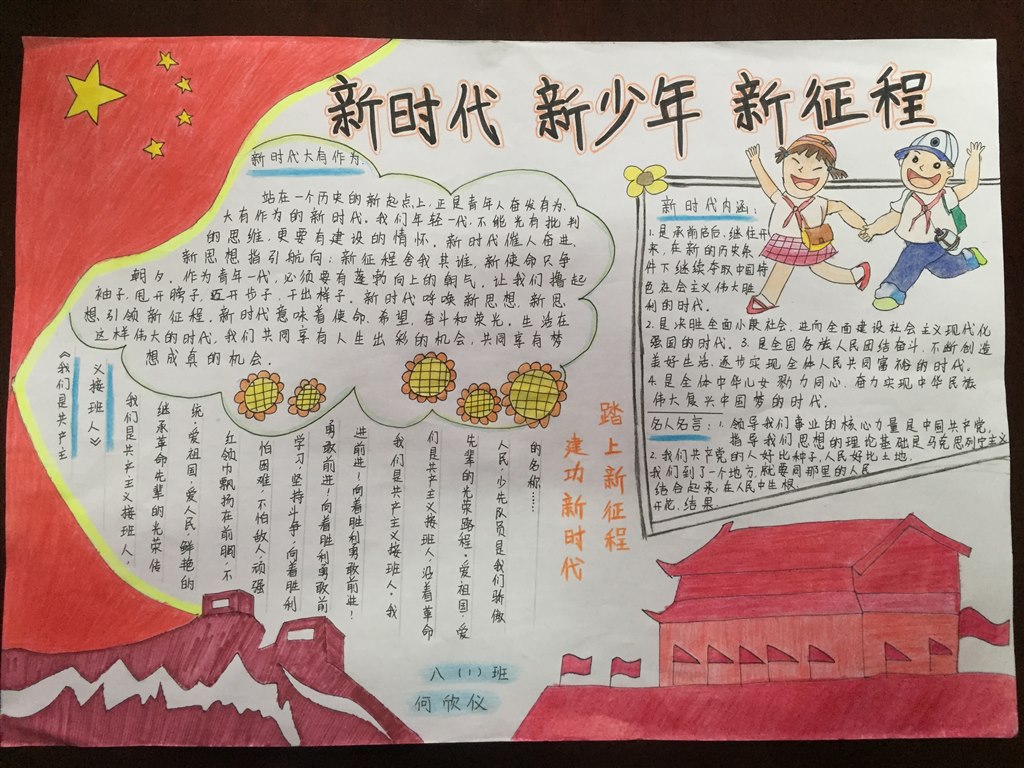 新时代 新少年 新征程
新时代大有作为:
站在一个历史的新起点上,正是青年人奋发有为、
大有作为的新时代。我们年轻一代,不能光有批判
的思维,更要有建设的情怀。新时代催人奋进,
新思想指引航向;新征程舍我其谁,新使命只争
朝夕。作为青年一代,必须要有蓬勃向上的朝气,让我们撸起
袖子,甩开膀子,迈开步子,干出样子。新时代呼唤新思想,新思
想引领新征程。新时代意味着使命、希望、奋斗和荣光。生活在
这样伟大的时代,我们共同享有人生出彩的机会,共同享有梦
想成真的机会。
新时代内涵:
1.是承前启后、继往开
来、在新的历史条
件下继续夺取中国特
色在会主义伟大胜
利的时代。
2.是决胜全面小康社会、进而全面建设社会主义现代化
强国的时代。3.是全国各族人民团结奋斗、不断创造
美好生活、逐步实现全体人民共同富裕的时代。
4.是全体中华儿女勠力同心、奋力实现中华民族
伟大复兴中国梦的时代。
名人名言:1.领导我们事业的核心力量是中国共产党,
指导我们思想的理论基础是马克思列宁主义
2.我们共产党的人好比种子,人民好比土地,
我们到了一个地方,就要同那里的人民
结合起来,在人民中生根、
开花、结果。
《我们是共产主
义接班人》
我们是共产主义接班人,
继承革命先辈的光荣传
统,爱祖国,爱人民,鲜艳的
红领巾飘扬在前胸,不
怕困难,不怕敌人,顽强
学习,坚持斗争,向着胜利
勇敢前进!向着胜利勇敢前
进前进!向着胜利勇敢前进!
我们是共产主义接班人。我
们是共产主义接班人,沿着革命
先辈的光荣路程。爱祖国,爱
人民,少先队员是我们骄傲
的名称……
踏上新征程
建功新时代
八(1)班
何欣仪